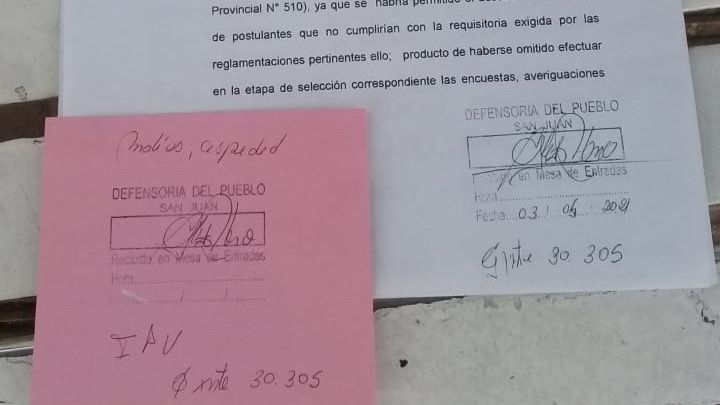 Provincial N° 510), ya que se habría
de postulantes que no cumplirian con la requisitoria exigida por las
reglamentaciones pertinentes ello; producto de haberse omitido efectuar
en la etapa de selección correspondiente las encuestas, averiguaciones
DEFENSORIA DEL PUEBLO
SAN JUAN
en Mesa de Entradas
Hora
Fecha 03 / 05 / 2021
30.305
DEFENSORIA DEL PUEBLO
SAN JUAN
Recibido en Mesa de Entradas
Hora
IPV
30.305